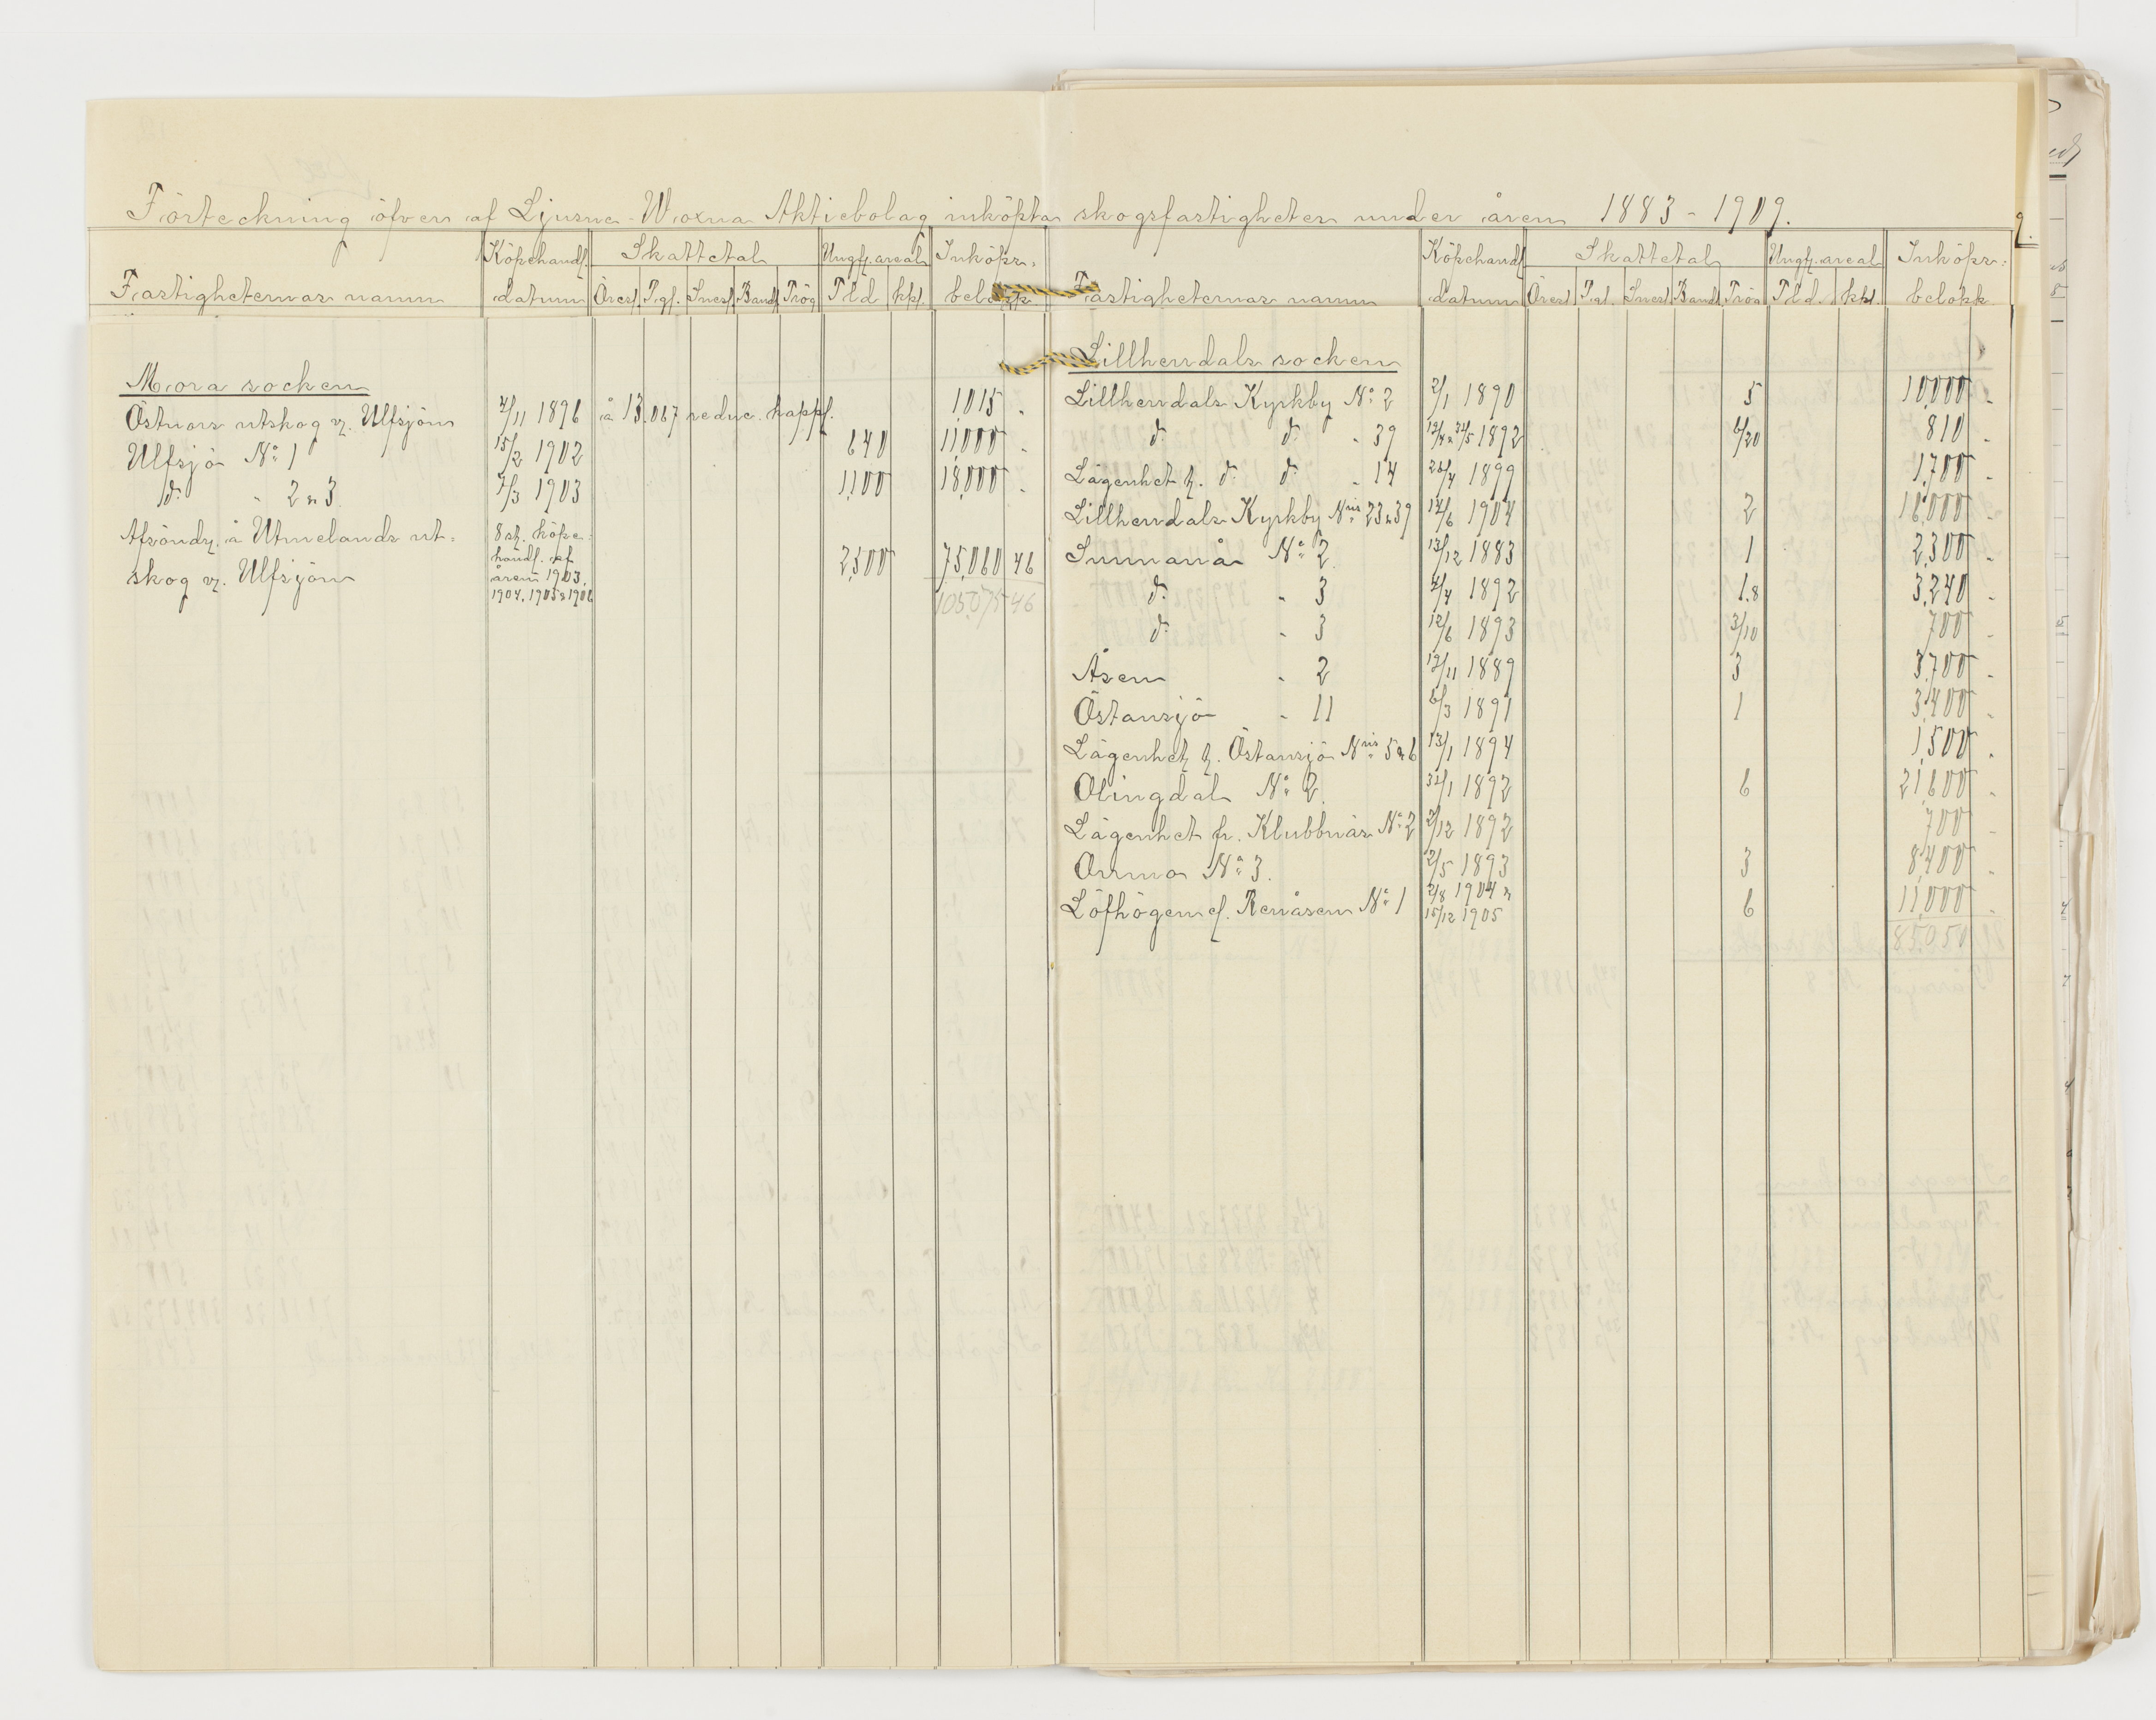 Förteckning öfver af Ljusne-Woxna Aktiebolag inköpta skogsfastigheter under åren 1883-1909.
9.
Fastigheternas namn Köpehandl. datum Skattetal Öresl. Pgl. Snesl. Bandl. Tråg Ungf. areal Tld kpl. Inköps-belopp
Mora socken
Östnors utskog v. Ulfsjön 4/11 1896 à 13.067 reduc. kappl. 1,015 -
Ulfsjö No 1 15/2 1902 640 11,000 -
do " 2 & 3 1903 1,100 18,000 -
Afsöndr. à Utmelands ut- 8 st. köpe-
skog v. Ulfsjön handl. af 2,500 75,060 46
åren 1903,
1904, 1905 & 1906 105,075 46
Fastigheternas namn Köpehandl. datum Skattetal Öresl. Pgl. Snesl. Bandl. Tråg Ungf. areal Tld. kpl. Inköps-belopp
Lillherrdals socken
Lillherrdals Kyrkby No 2 2/1 1890 5 10,000 -
do do " 39 1892 6/20 810 -
Lägenhet fr. do do " 14 26/4 1899 1,700 -
Lillherrdals Kyrkby Nris 23 & 39 14/6 1904 2 16,000 -
Sunnanå No 2 13/12 1883 1 2,300 -
do " 3 1892 1.8 3,240 -
do " 3 12/6 1893 3/10 700 -
Åsen " 2 19/11 1889 3 3,700 -
Östansjö " 11 6/3 1891 1 3,400 -
Lägenhet fr. Östansjö Nris 5 & 6 13/1 1894 1,500 -
Olingdal No 2. 1892 6 21,600 -
Lägenhet fr. Klubbnäs No 2 2/12 1892 700 -
Orrmo No 3. 2/5 1893 3 8,400 -
Löfhögen el. Renåsen No 1 2/8 1904 & 6 11,000 -
15/12 1905
85,050